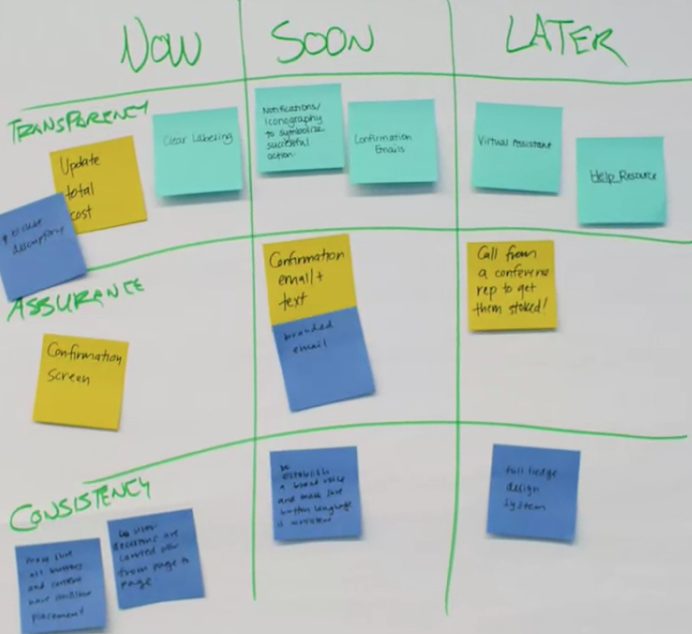 NOW
SOON
LATER
TRANSPARENCY
Update
total
cost
Clear Labeling
Notifications/
iconography
to symbolize
successful
action.
Confirmation
Emails
Virtual Assistant
Help Resource
ASSURANCE
Confirmation
Screen
Confirmation
email/+
text
branded
email
Call from
a conference
rep to get
them stoked!
CONSISTENCY
make sure
all buttons
and content
have
placement
user
decisions are
carried over
from page to
page
establish
a brand voice
and make sure
button language
is
full fledge
design
system